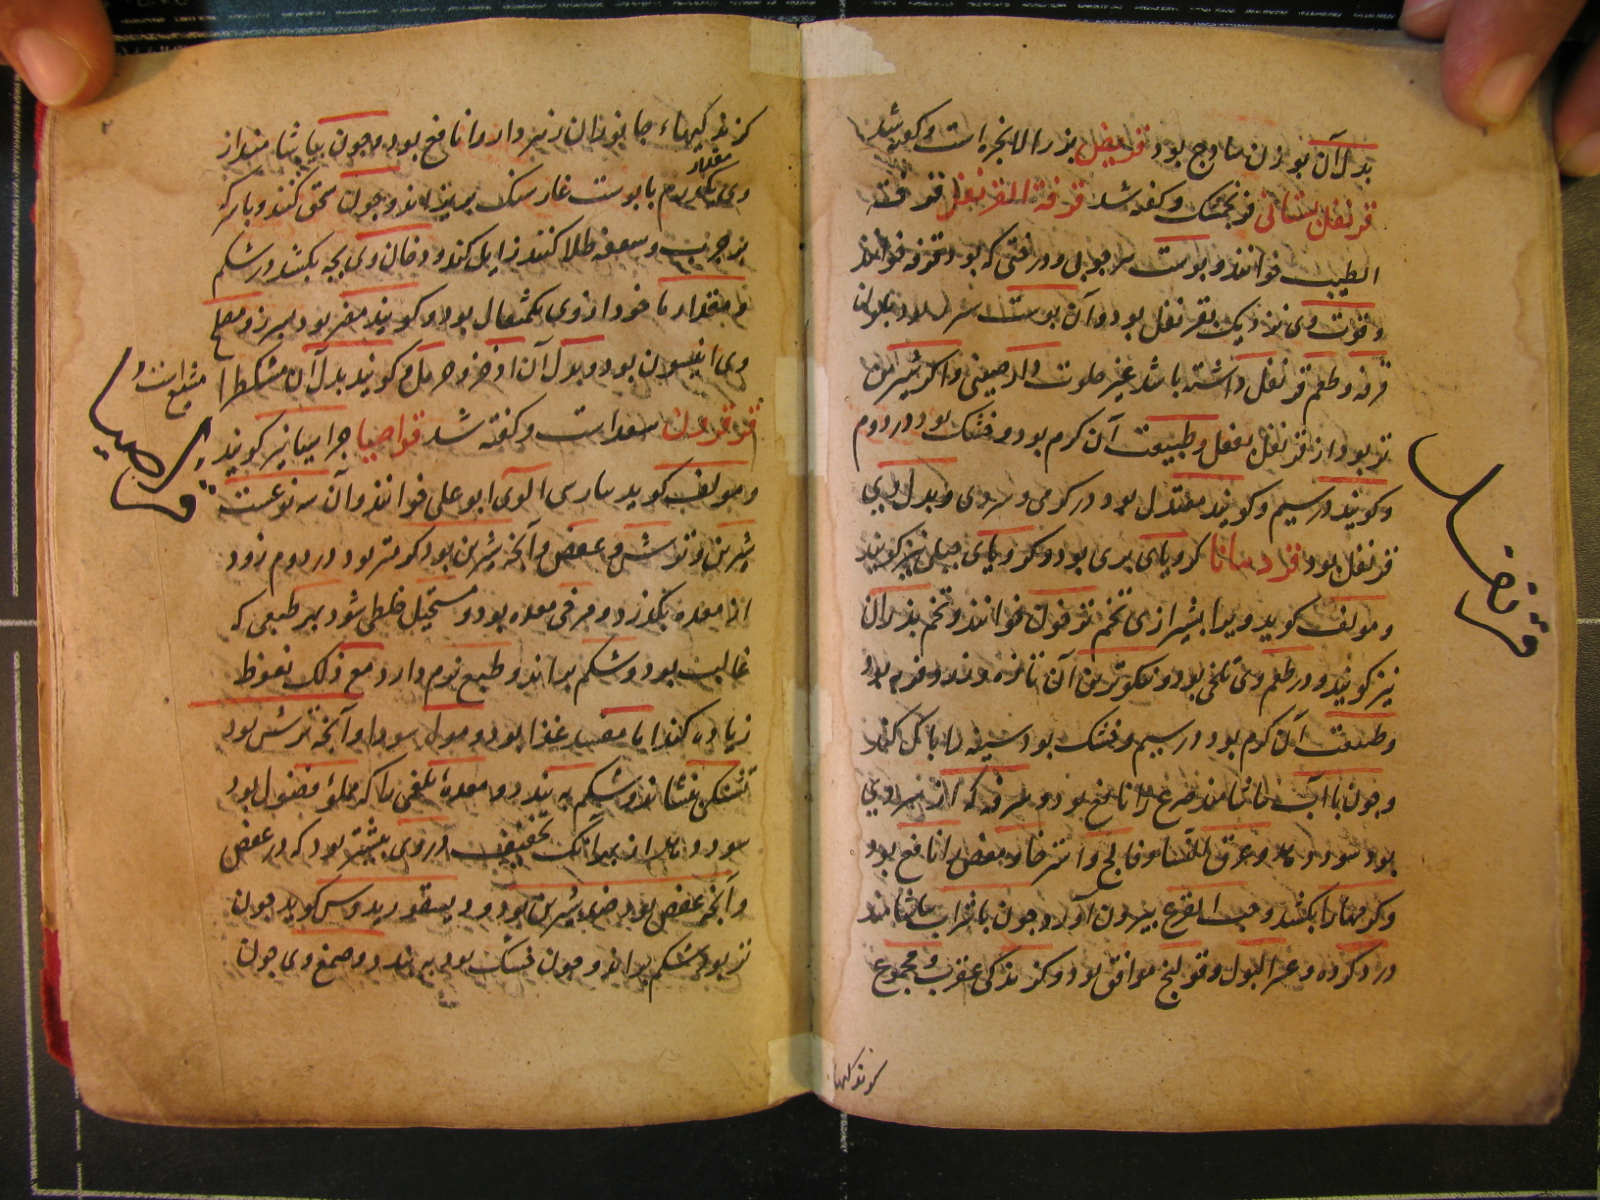 بدل آن بوزن ساوج بود قریض بذر الانجره است و گویند
قرنفل بستانی فرنجمشک و گفته شد قرفة القرنفل قرفة
الطیب خوانند و پوست چوبی بود و رقتی که بود قرفه خوانند
و قوت وی نزدیک بقرنفل بود و آن پوست
قرفه و طعم قرنفل داشته باشد غیر حلوت دارصینی و اگر شیرین
تر بود از قرنفل بفعل و طبیعت آن گرم بود و خشک بود در دوم
و گویند در سیم و گویند معتدل بود در گرمی و سردی و بدل وی
قرنفل بود قردمانا کرویای بری بود و کرویای جبلی نیز گویند
و مولف گوید ویرا بشیرازی تخم نترفول خوانند و تخم
نیز گویند و در طعم وی تلخی بود و نیکوترین آن تازه بود و فربه بود
و طبیعت آن گرم بود در سیم و خشک بود سینه را پاک کند
و چون با آب بیاشامند صرع را نافع بود و سرفه که از سردی
بود سود دهد و عرق النسا و فالج و استرخا و مغص را نافع بود
و کرمها را بکشد و حب القرع بیرون آورد و چون با شراب بیاشامند
درد گرده و عسر البول و قولنج موافق بود و گزندگی عقرب و مجموع
گزندگیها
قرنفل
گزندگیهاء جانوران زهردار را نافع بود و چون بیاشامند از
وی مقدار یکدرم با پوست غار سنگ بریزاند و چون سحق کنند و با سرکه
بر جرب و سعفه طلا کنند زایل کند و دخان وی بچه بکشد در شکم
و مقدار ماخوذ از وی یکمثقال بود و گویند مضر بود بسپرز و مصلح
وی انیسون بود و بدل آن اذخر و حرمل و گویند بدل آن مشکطرا
مشیع است
قرقرون سعد است و گفته شد قراصیا جراسیا نیز گویند
قراصیا
و مولف گوید بپارسی آلوی ابوعلی خوانند و آن سه نوعست
شیرین و ترش و عفص و آنچه شیرین بود گرم‌تر بود در دوم زود
از معده بگذرد و مرخی معده بود و مستحیل خلطی شود بهر طبعی که
غالب بود و شکم براند و طبع نرم دارد مع ذلک نعوظ
زیاده کند اما مفسد غذا بود و مولد سودا و آنچه ترش بود
تشنگی بنشاند و شکم ببندد و معده بلغمی را که مملو فضول بود
سود دهد از بهر آنک تجفیف در وی بیشتر بود که در عفص
و آنچه عفص بود ضد شیرین بود و دیسقوریدوس گوید چون
تر بود شکم براند و چون خشک بود ببندد و صمغ وی چون